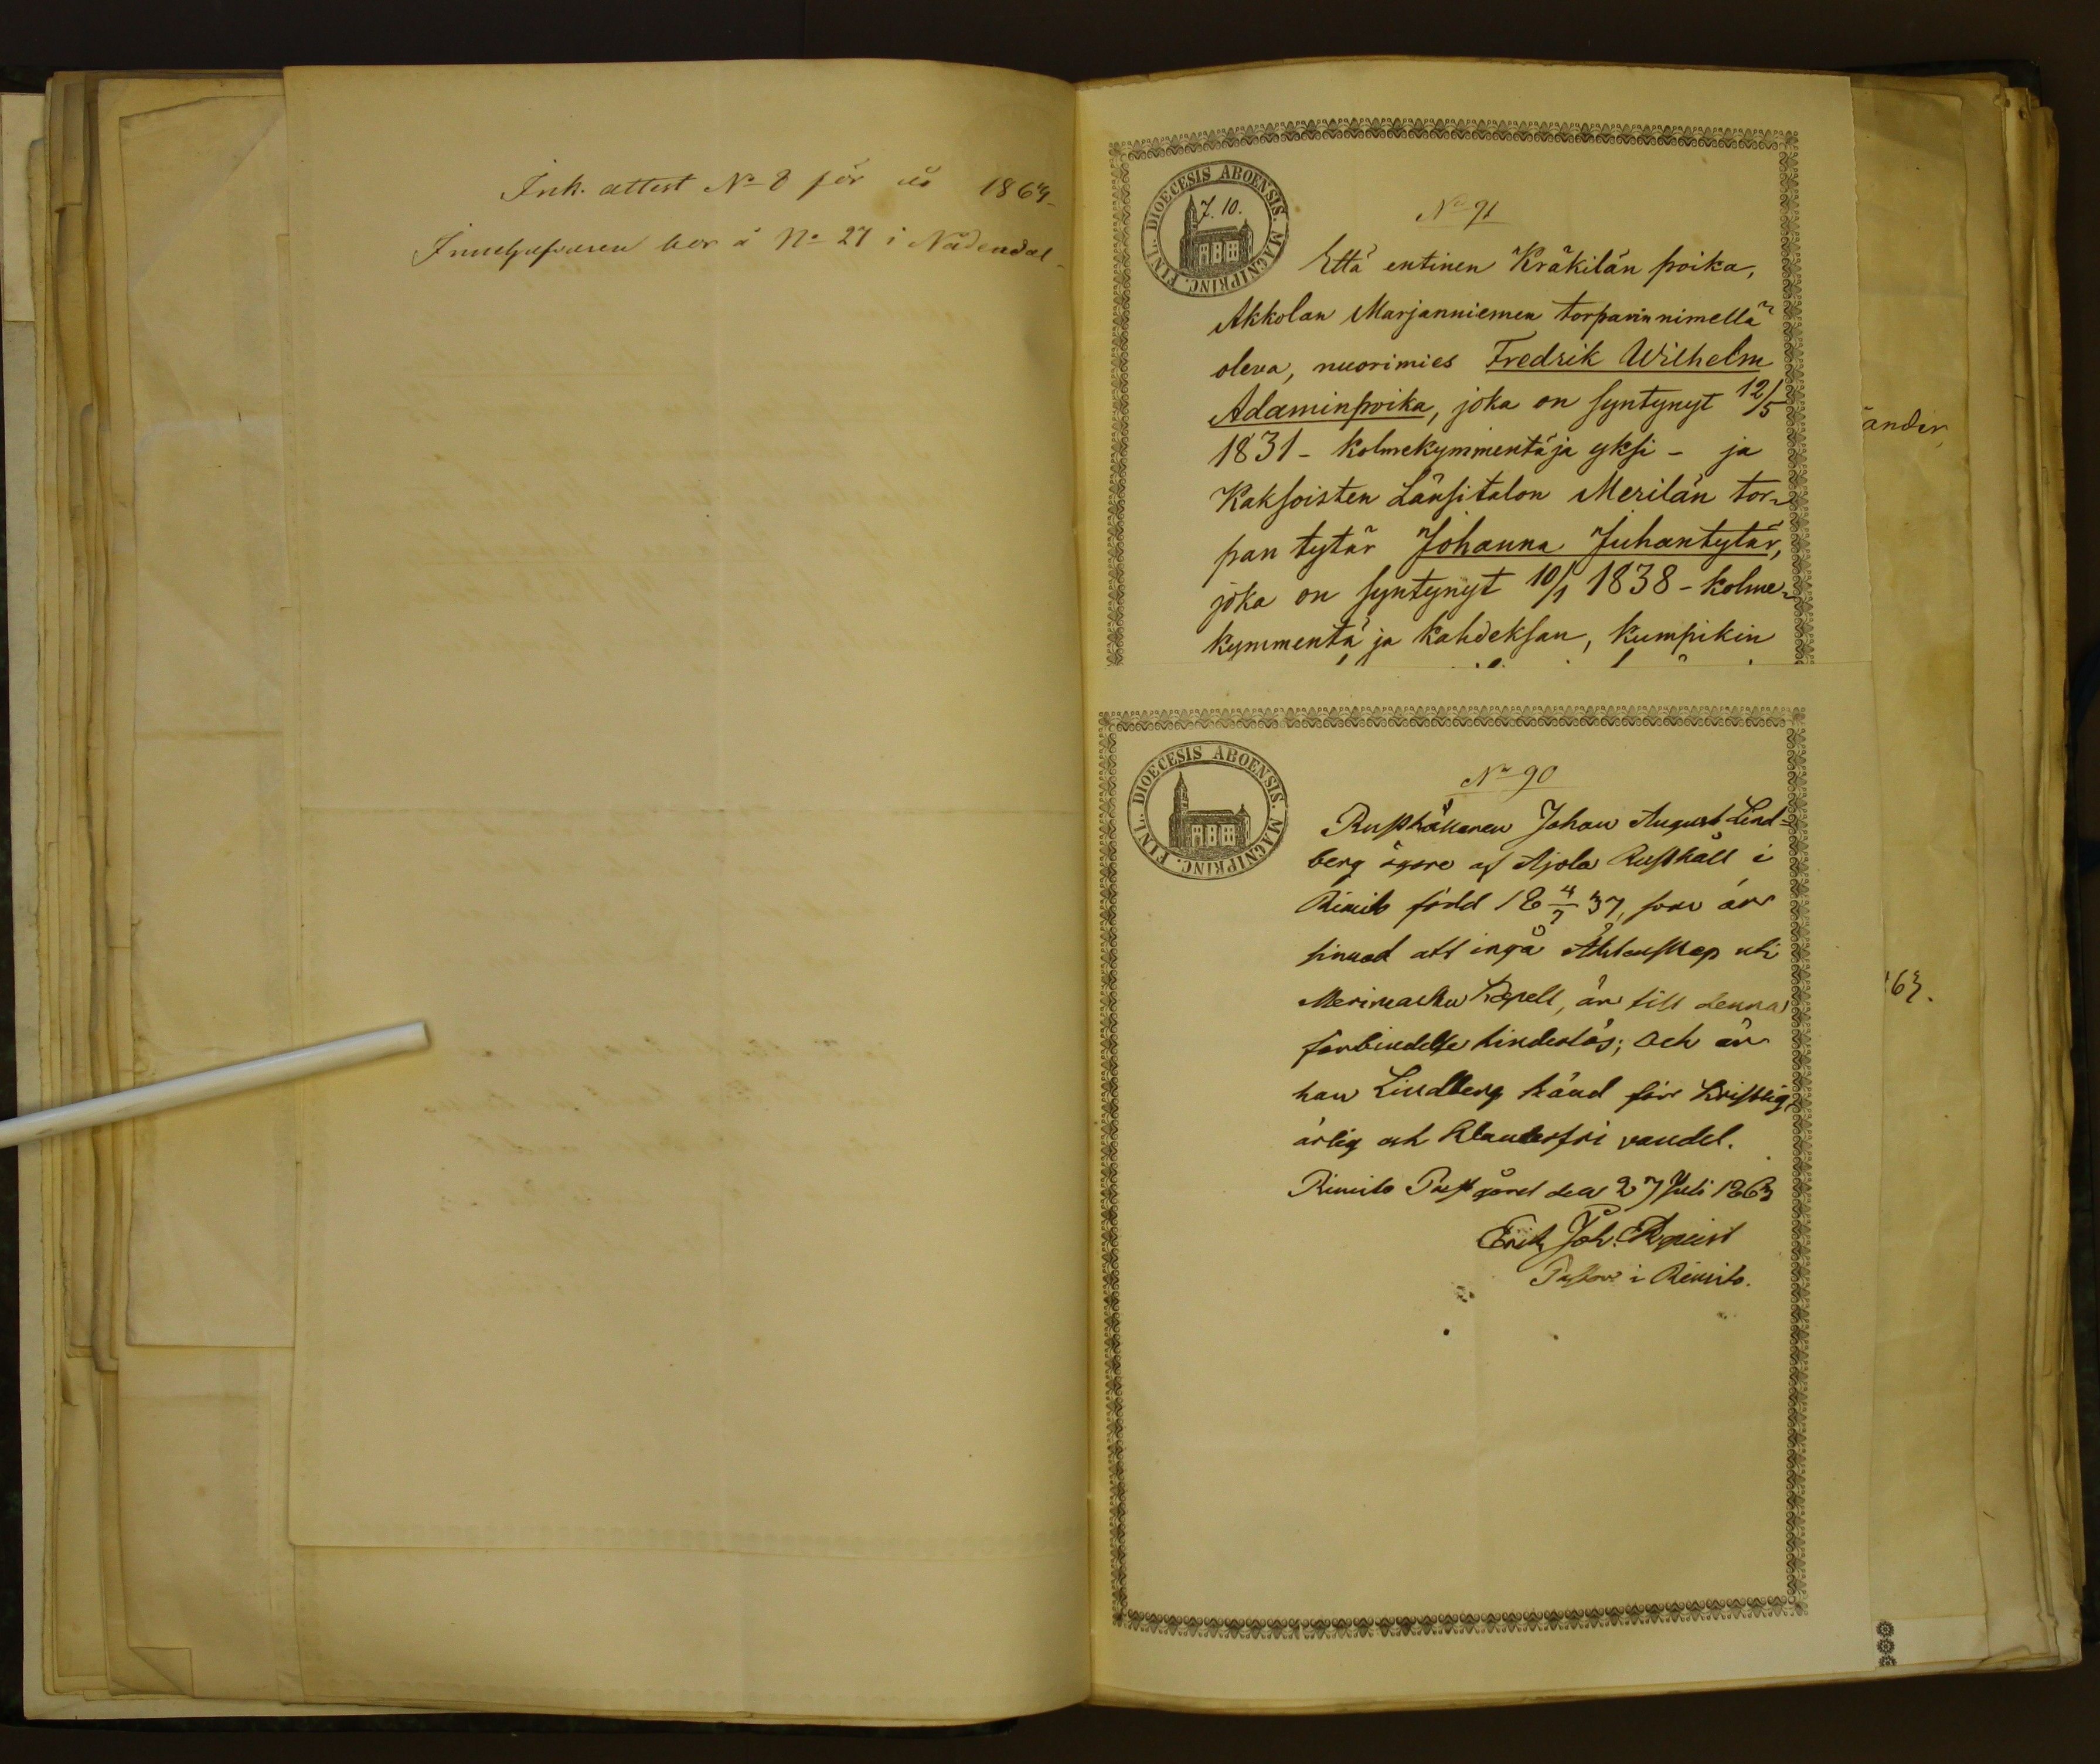 Ink. attest No 8 för år 1864
Innehafvaren bor å No 27 i Nådendal
DIOECESIS ABOENSIS. MAGNIPRINC. FINL.
J. 10.
No 91
Että entinen Kräkilän poika,
Akkolan Marjanniemen torparin nimellä
oleva, nuorimies Fredrik Wilhelm
Adaminpoika, joka on syntynyt 12/5
1831 - kolmekymmentä ja yksi - ja
Kaksoisten Länsitalon Merilän tor=
pan tytär Johanna Juhantytär,
joka on syntynyt 10/1 1838 - kolme=
kymmentä ja kahdeksan, kumpikin
DIOECESIS ABOENSIS. MAGNIPRINC. FINL.
No 90
Rusthållaren Johan August Lind=
berg ägare af Ajola Rusthåll i
Rimito född 18 4/7 37, som är
sinnad att ingå Äktenskap uti
Merimasku Kapell, är till denna
förbindelse hinderlös; och är
han Lindberg känd för kristlig,
ärlig och klanderfri vandel.
Rimito Prestgård den 27 Juli 1863
Erik Joh.
Pastor i Rimito.
ander,
63.